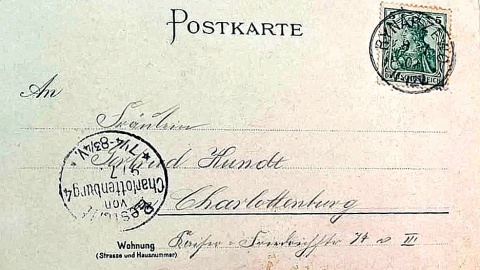 POSTKARTE
An
Fräulein
Gertrud Hundt
Charlottenburg
Wohnung
(Strasse und Hausnummer)
Kaiser-Friedrichstr 74 III
5
Bestellt
von
Charlottenburg 4
7¼-8¾V.